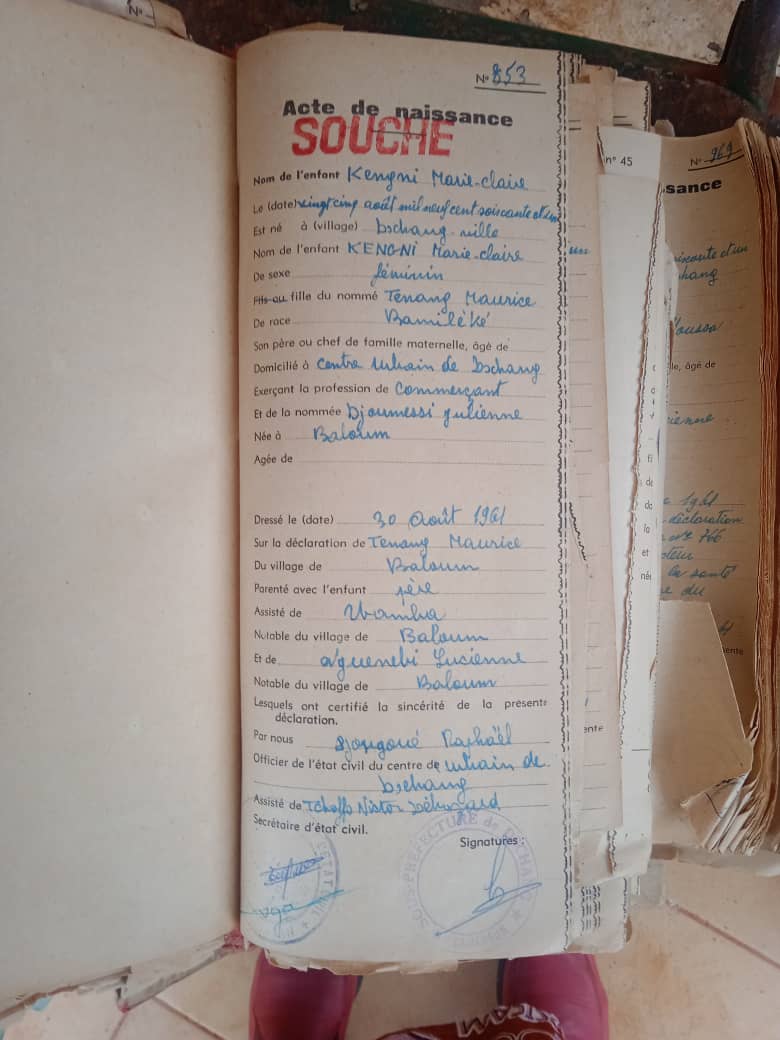 N°
N° 853
Acte de naissance
SOUCHE
Nom de l'enfant Kengni Marie-claire
Le (date) vingt cinq août mil neuf cent soixante et un
Est né à (village) Dschang-ville
Nom de l'enfant KENGNI Marie-claire
De sexe féminin
Fils ou fille du nommé Tenang Maurice
De race Bamiléké
Son père ou chef de famille maternelle, âgé de
Domicilié à Centre Urbain de Dschang
Exerçant la profession de Commerçant
Et de la nommée Djoumessi Julienne
Née à Baloum
Agée de
Dressé le (date) 30 Août 1961
Sur la déclaration de Tenang Maurice
Du village de Baloum
Parenté avec l'enfant père
Assisté de
Notable du village de Baloum
Et de Lucienne
Notable du village de Baloum
Lesquels ont certifié la sincérité de la présente
déclaration.
Par nous Raphaël
Officier de l'état civil du centre de urbain de
Dschang
Assisté de Tchoffo Nistor
Secrétaire d'état civil.
Signatures :
SOUS-PREFECTURE de DSCHANG
n° 45
N° 969
ssance
oixante et un
hang
lle, âgé de
ienne
1961
déclaration
766
la santé
du
ente